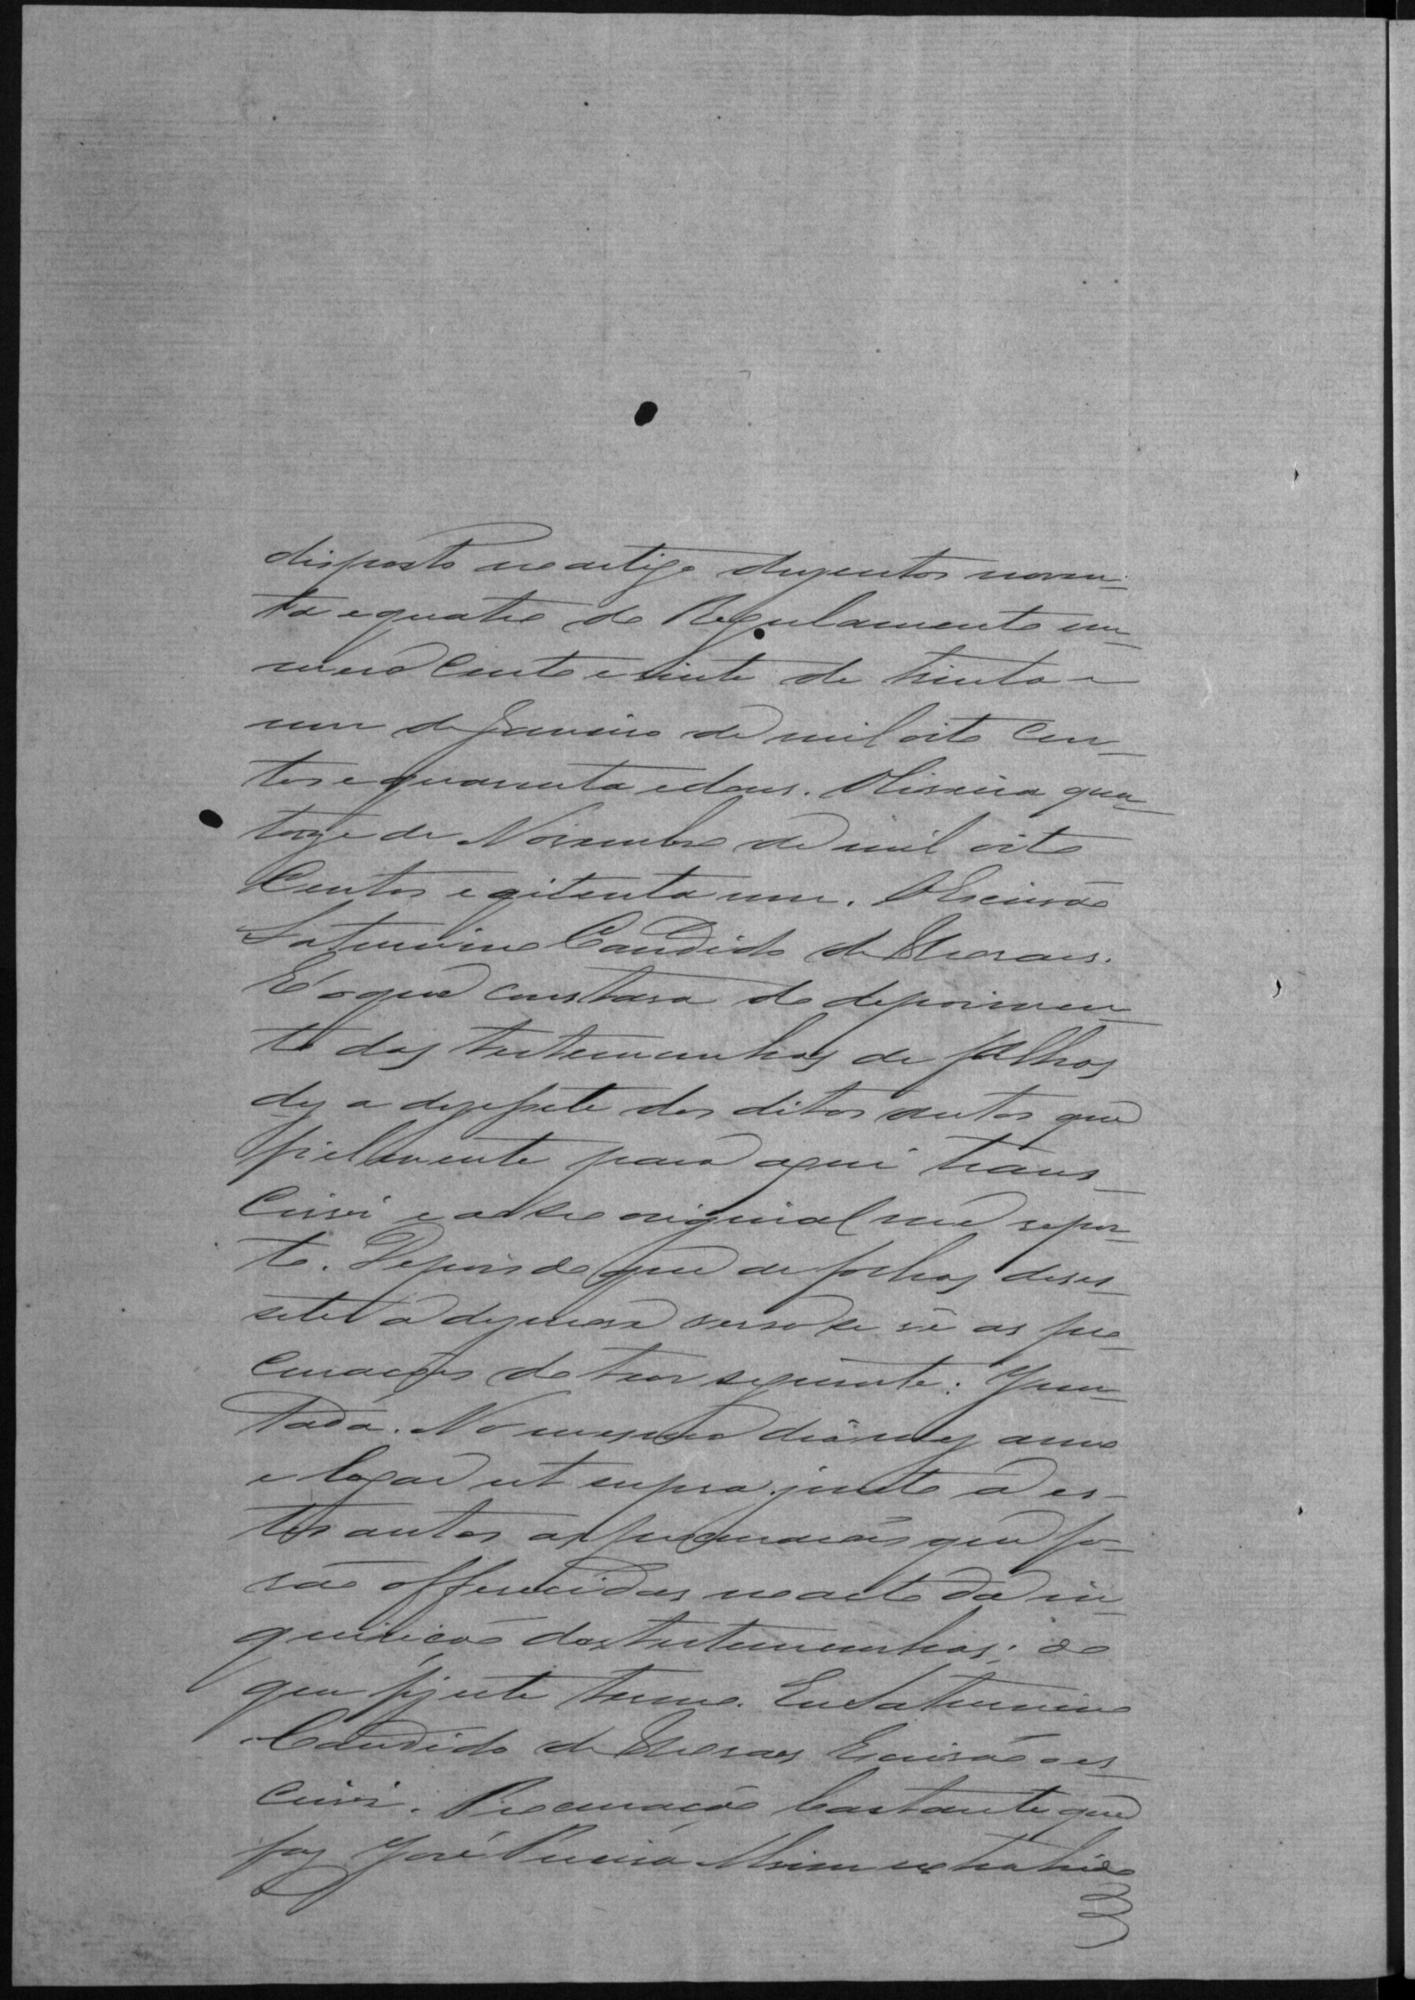 disposto no artigo duzentos noven-
ta e quatro do Regulamento nu-
mero Cento e vinte de trinta e
um de Janeiro de mil oito cen-
tos e quarenta e dous. Oliveira qua-
torze de Novembro de mil oito
Centos e oitenta um. O Escrivão
Saturnino Candido de Moraes.
E o que constava do depoimen-
to das testemunhas de folhas
dez a dezesete dos ditos autos que
fielmente para aqui trans-
crevi e ao seo original me repor-
to. Depois do que de folhas deses-
sete a dezenove verso se vê as pro-
curações do teor seguinte: Jun-
tada. No mesmo dia mez anno
e logar ut supra junto a es-
tes autos as procurações que fo-
rão offerecidas no acto da in-
quirição das testemunhas; do
que fiz este termo. Eu Saturnino
Candido de Moraes Escrivão o es-
crevi. Procuração bastante que
faz José Pereira